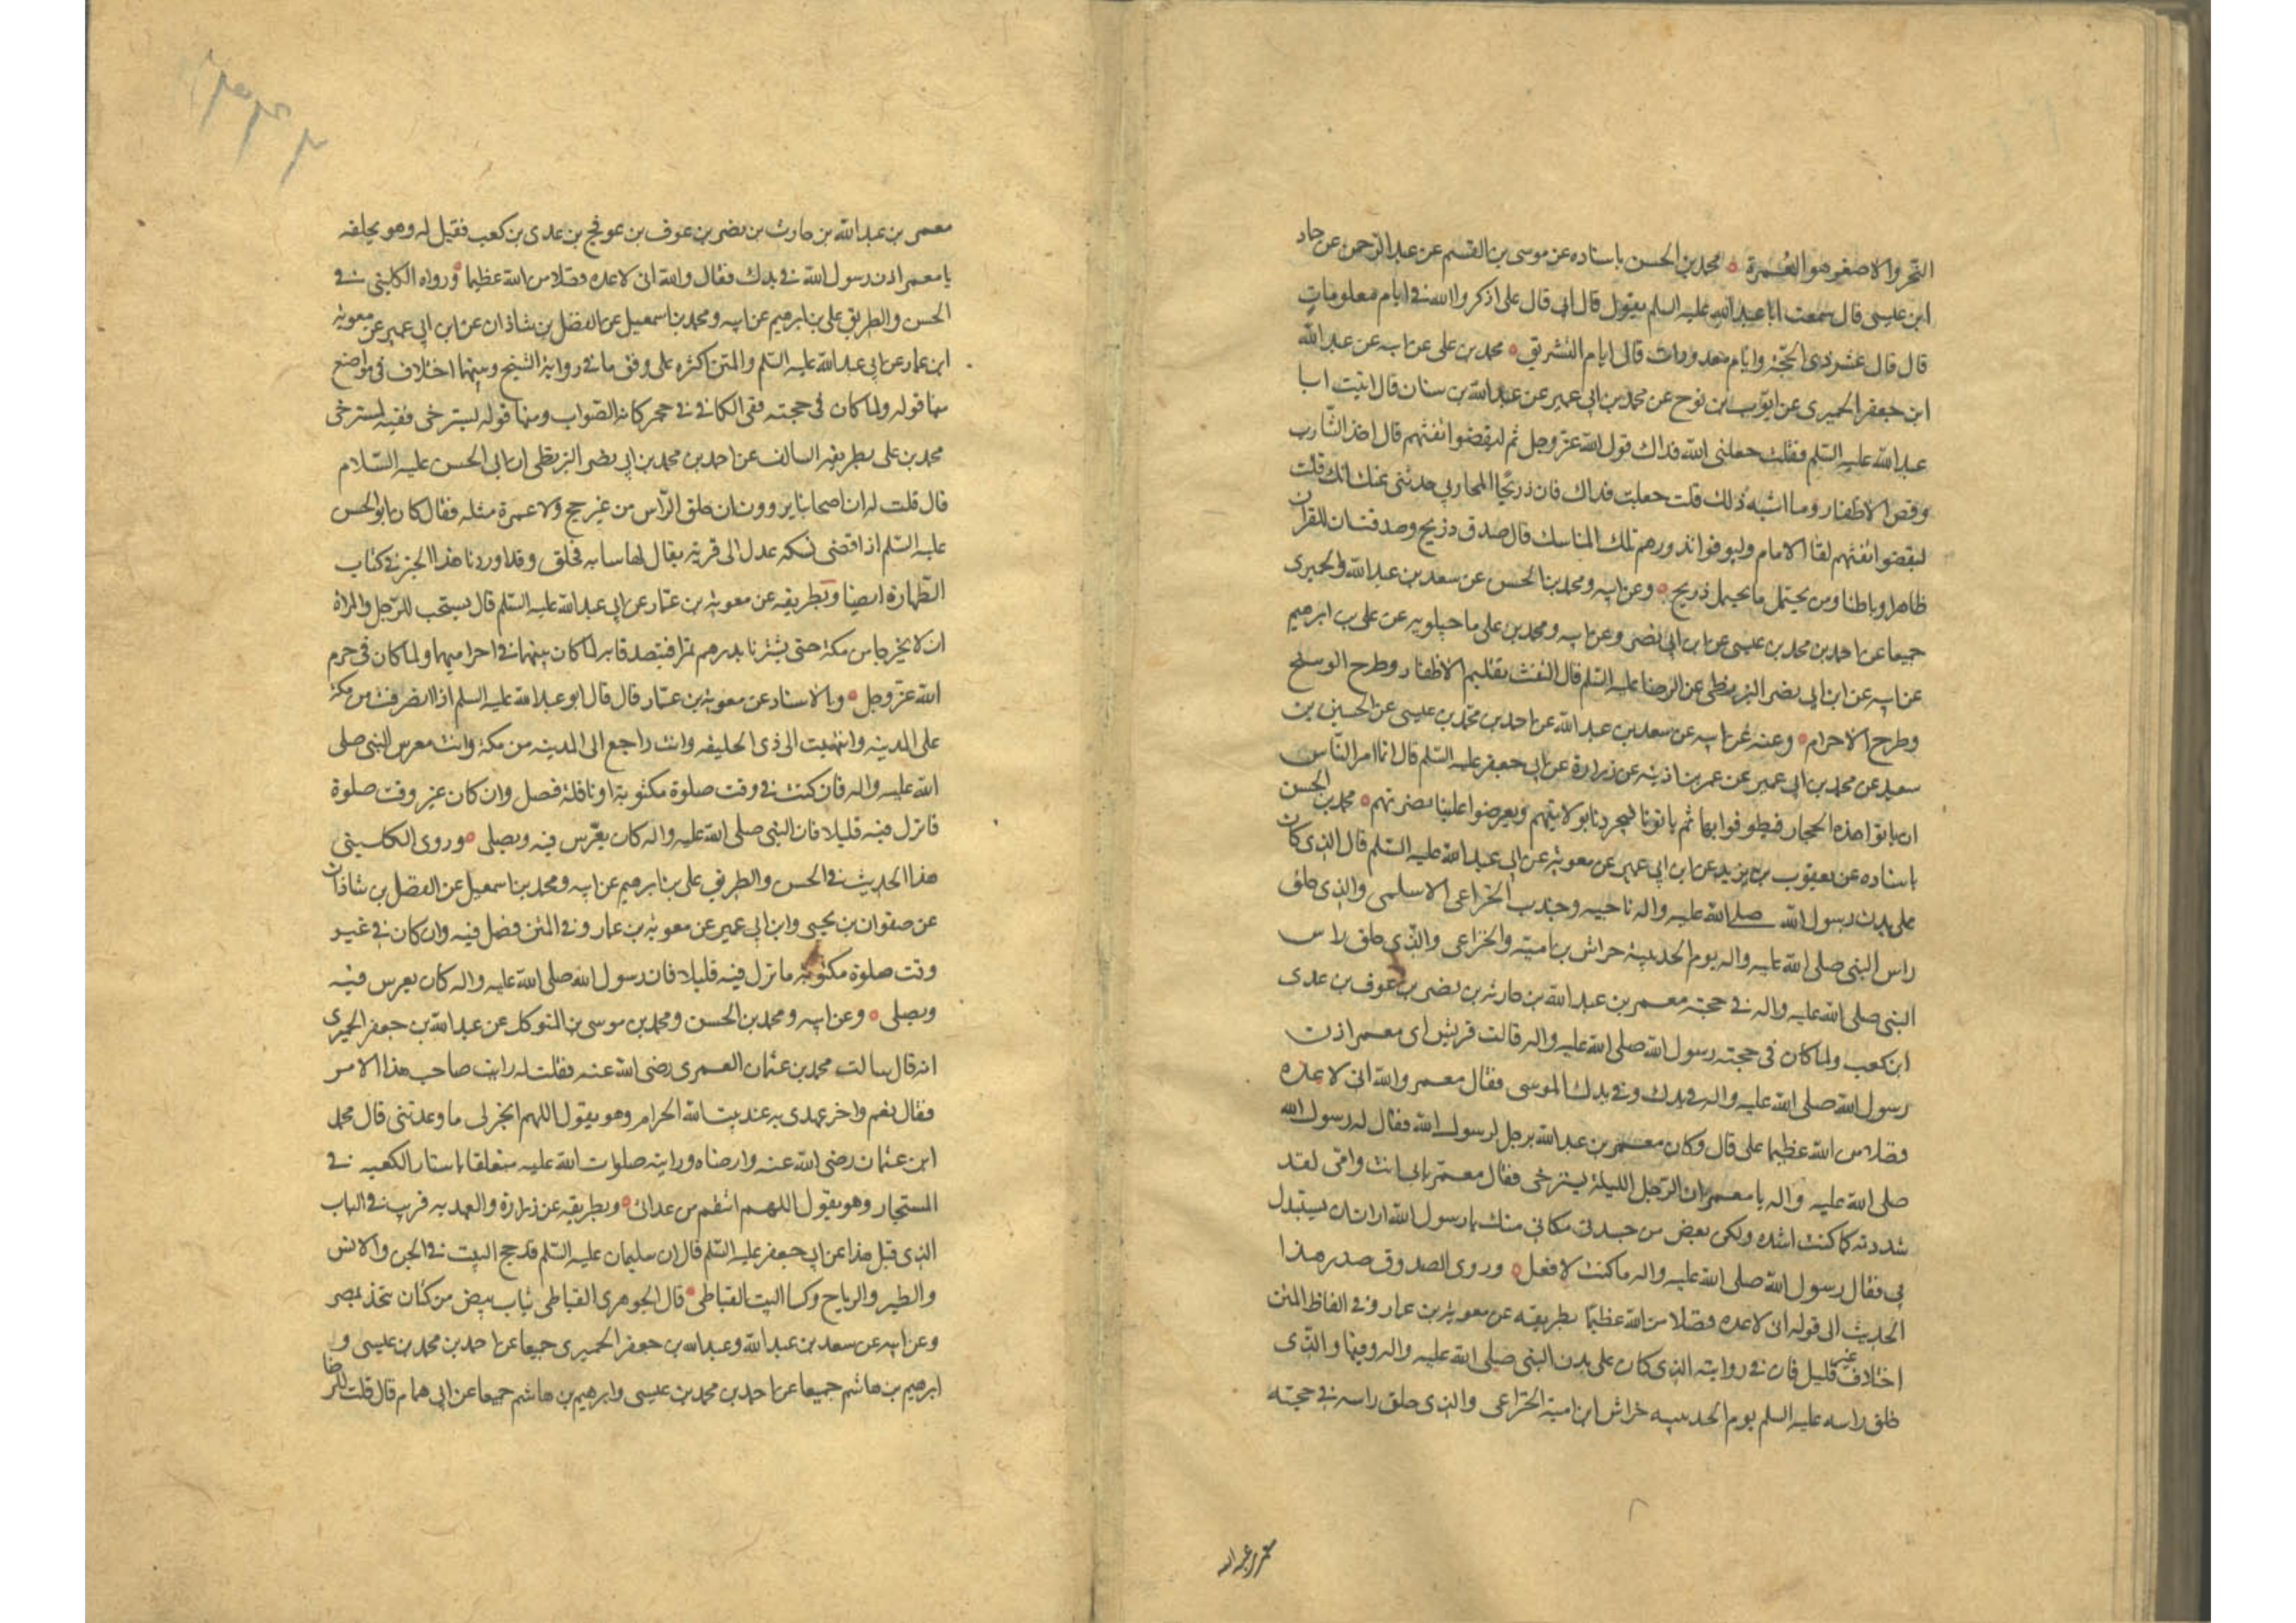 النحر والاصغر هو العمرة محمد بن الحسن باسناده عن موسى بن القسم عن عبد الرحمن عن حماد
ابن عيسى قال سمعت ابا عبد الله عليه السلم يقول قال ابي قال علي اذكروا الله في ايام معلومات
قال قال عشر ذي الحجة وايام معدودات قال ايام التشريق محمد بن علي عن ابيه عن عبد الله
ابن جعفر الحميري عن ايوب بن نوح عن محمد بن ابي عمير عن عبد الله بن سنان قال اتيت ابا
عبد الله عليه السلم فقلت جعلني الله فداك قول الله عز وجل ثم ليقضوا تفثهم قال اخذ الشارب
وقص الاظفار وما اشبه ذلك قلت جعلت فداك فان ذريحا المحاربي حدثني عنك انك قلت
ليقضوا تفثهم لقا الامام وليوفوا نذورهم تلك المناسك قال صدق ذريح وصدقت ان للقران
ظاهرا وباطنا ومن يحتمل ما يحتمل ذريح وعن ابيه ومحمد بن الحسن عن سعد بن عبد الله والحميري
جميعا عن احمد بن محمد بن عيسى عن ابن ابي نصر وعن ابيه ومحمد بن علي ماجيلويه عن علي بن ابرهيم
عن ابيه عن ابن ابي نصر البزنطي عن الرضا عليه السلم قال التفث تقليم الاظفار وطرح الوسخ
وطرح الاحرام وعنه عن ابيه عن سعد بن عبد الله عن احمد بن محمد بن عيسى عن الحسين بن
سعيد عن محمد بن ابي عمير عن عمر بن اذينه عن زرارة عن ابي جعفر عليه السلم قال انما امر الناس
ان ياتوا هذه الحجار فيطوفوا بها ثم ياتونا فيخبرونا بولايتهم ويعرضوا علينا نصرتهم محمد بن الحسن
باسناده عن يعقوب بن يزيد عن ابن ابي عمير عن معوية عن ابي عبد الله عليه السلم قال الذي كان
على بدن رسول الله صلى الله عليه واله ناجيه وجندب الخزاعي الاسلمي والذي حلق
راس النبي صلى الله عليه واله يوم الحديبية حراش بن امية والخزاعي والذي حلق راس
النبي صلى الله عليه واله في حجته معمر بن عبد الله بن حارثة بن نصر بن عوف بن عدي
ابن كعب ولما كان في حجته رسول الله صلى الله عليه واله قالت قريش اي معمر اذن
رسول الله صلى الله عليه واله في يدك وفي يدك الموسى فقال معمر والله اني لاعده
فضلا من الله عظيما علي قال وكان معمر بن عبد الله يرحل لرسول الله فقال له رسول الله
صلى الله عليه واله يا معمر ان الرحل الليلة يسترخى فقال معمر بابي انت وامي لقد
شددته كما كنت اشده ولكن بعض من حسدني مكاني منك يا رسول الله اراد ان يستبدل
بي فقال رسول الله صلى الله عليه واله ما كنت لافعل وروى الصدوق صدر هذا
الحديث الى قوله اني لاعده فضلا من الله عظيما بطريقه عن معوية بن عمار وفي الفاظ المتن
اختلاف غير قليل فان في روايته الذي كان على بدن النبي صلى الله عليه واله وفيها والذي
حلق راسه عليه السلم يوم الحديبيه خراش ابن امية الخزاعي والذي حلق راسه في حجته
معمر بن عبد الله
معمر بن عبد الله بن حارث بن نصر بن عوف بن عويج بن عدي بن كعب فقيل له وهو يحلقه
يا معمر اذن رسول الله في يدك فقال والله اني لاعده فضلا من الله عظيما ورواه الكليني في
الحسن والطريق علي بن ابرهيم عن ابيه ومحمد بن اسمعيل عن الفضل بن شاذان عن ابن ابي عمير عن معوية
ابن عمار عن ابي عبد الله عليه السلم والمتن اكثره على وفق ما في رواية الشيخ وبينهما اختلاف في مواضع
منها قوله ولما كان في حجته ففي الكافي في حجر كانه الصواب ومنها قوله يسترخى ففيه لمسترخى
محمد بن علي بطريقه السالف عن احمد بن محمد بن ابي نصر البزنطي ان ابي الحسن عليه السلام
قال قلت له ان اصحابنا يروون ان حلق الراس من غير حج ولا عمرة مثله فقال كان ابو الحسن
عليه السلم اذا قضى نسكه عدل الى قرية يقال لها سايه فحلق وقد اوردنا هذا الخبر في كتاب
الطهارة ايضا وبطريقه عن معوية بن عمار عن ابي عبد الله عليه السلم قال يستحب للرجل والمراة
ان لا يخرجا من مكة حتى يشتريا بدرهم تمرا فيتصدقا به لما كان بينهما في احراميهما ولما كان في حرم
الله عز وجل وبالاسناد عن معوية بن عمار قال قال ابو عبد الله عليه السلم اذا انصرفت من مكة
على المدينه وانتهيت الى ذي الحليفه وانت راجع الى المدينه من مكة وانت معرس النبي صلى
الله عليه واله فان كنت في وقت صلوة مكتوبة او نافلة فصل وان كان غير وقت صلوة
فانزل فيه قليلا فان النبي صلى الله عليه واله كان يعرس فيه ويصلي وروى الكليني
هذا الحديث في الحسن والطريق علي بن ابرهيم عن ابيه ومحمد بن اسمعيل عن الفضل بن شاذان
عن صفوان بن يحيى وابن ابي عمير عن معوية بن عمار وفي المتن فصل فيه وان كان في غير
وقت صلوة مكتوبة فانزل فيه قليلا فان رسول الله صلى الله عليه واله كان يعرس فيه
ويصلي وعن ابيه ومحمد بن الحسن ومحمد بن موسى بن المتوكل عن عبد الله بن جعفر الحميري
انه قال سالت محمد بن عثمان العمري رضي الله عنه فقلت له رايت صاحب هذا الامر
فقال نعم واخر عهدي به عند بيت الله الحرام وهو يقول اللهم انجز لي ما وعدتني قال محمد
ابن عثمان رضي الله عنه وارضاه ورايته صلوات الله عليه متعلقا باستار الكعبه في
المستجار وهو يقول اللهم انتقم من عدائ وبطريقه عن زرارة والعهد به قريب في الباب
الذي قبل هذا عن ابي جعفر عليه السلم قال ان سليمان عليه السلم قد حج البيت في الجن والانس
والطير والرياح وكسا البيت القباطي قال الجوهري القباطي ثياب بيض من كتان يتخذ بمصر
وعن ابيه عن سعد بن عبد الله وعبد الله بن جعفر الحميري جميعا عن احمد بن محمد بن عيسى و
ابرهيم بن هاشم جميعا عن احمد بن محمد بن عيسى وابرهيم بن هاشم جميعا عن ابي همام قال قلت للرضا